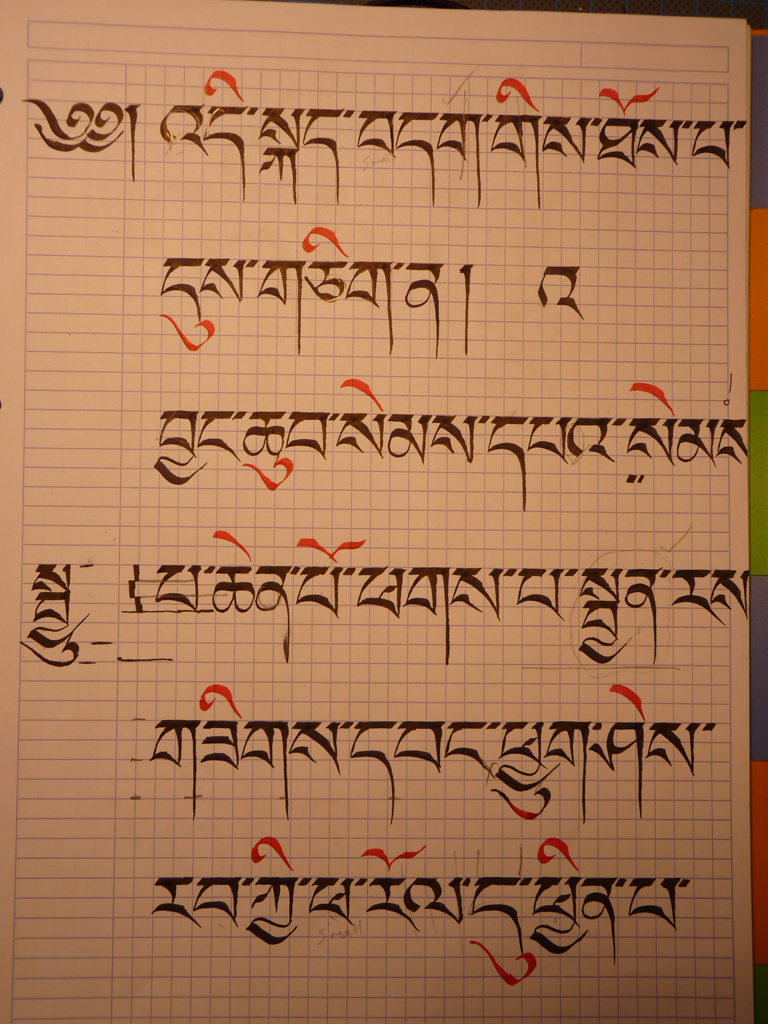 ༄༅། འདི་སྐད་བདག་གིས་ཐོས་པ་
དུས་གཅིག་ན། འ
བྱང་ཆུབ་སེམས་དཔའ་སེམས
པ་ཆེན་པོ་འཕགས་པ་སྤྱན་རས
གཟིགས་དབང་ཕྱུག་ཤེས་
རབ་ཀྱི་ཕ་རོལ་དུ་ཕྱིན་པ་